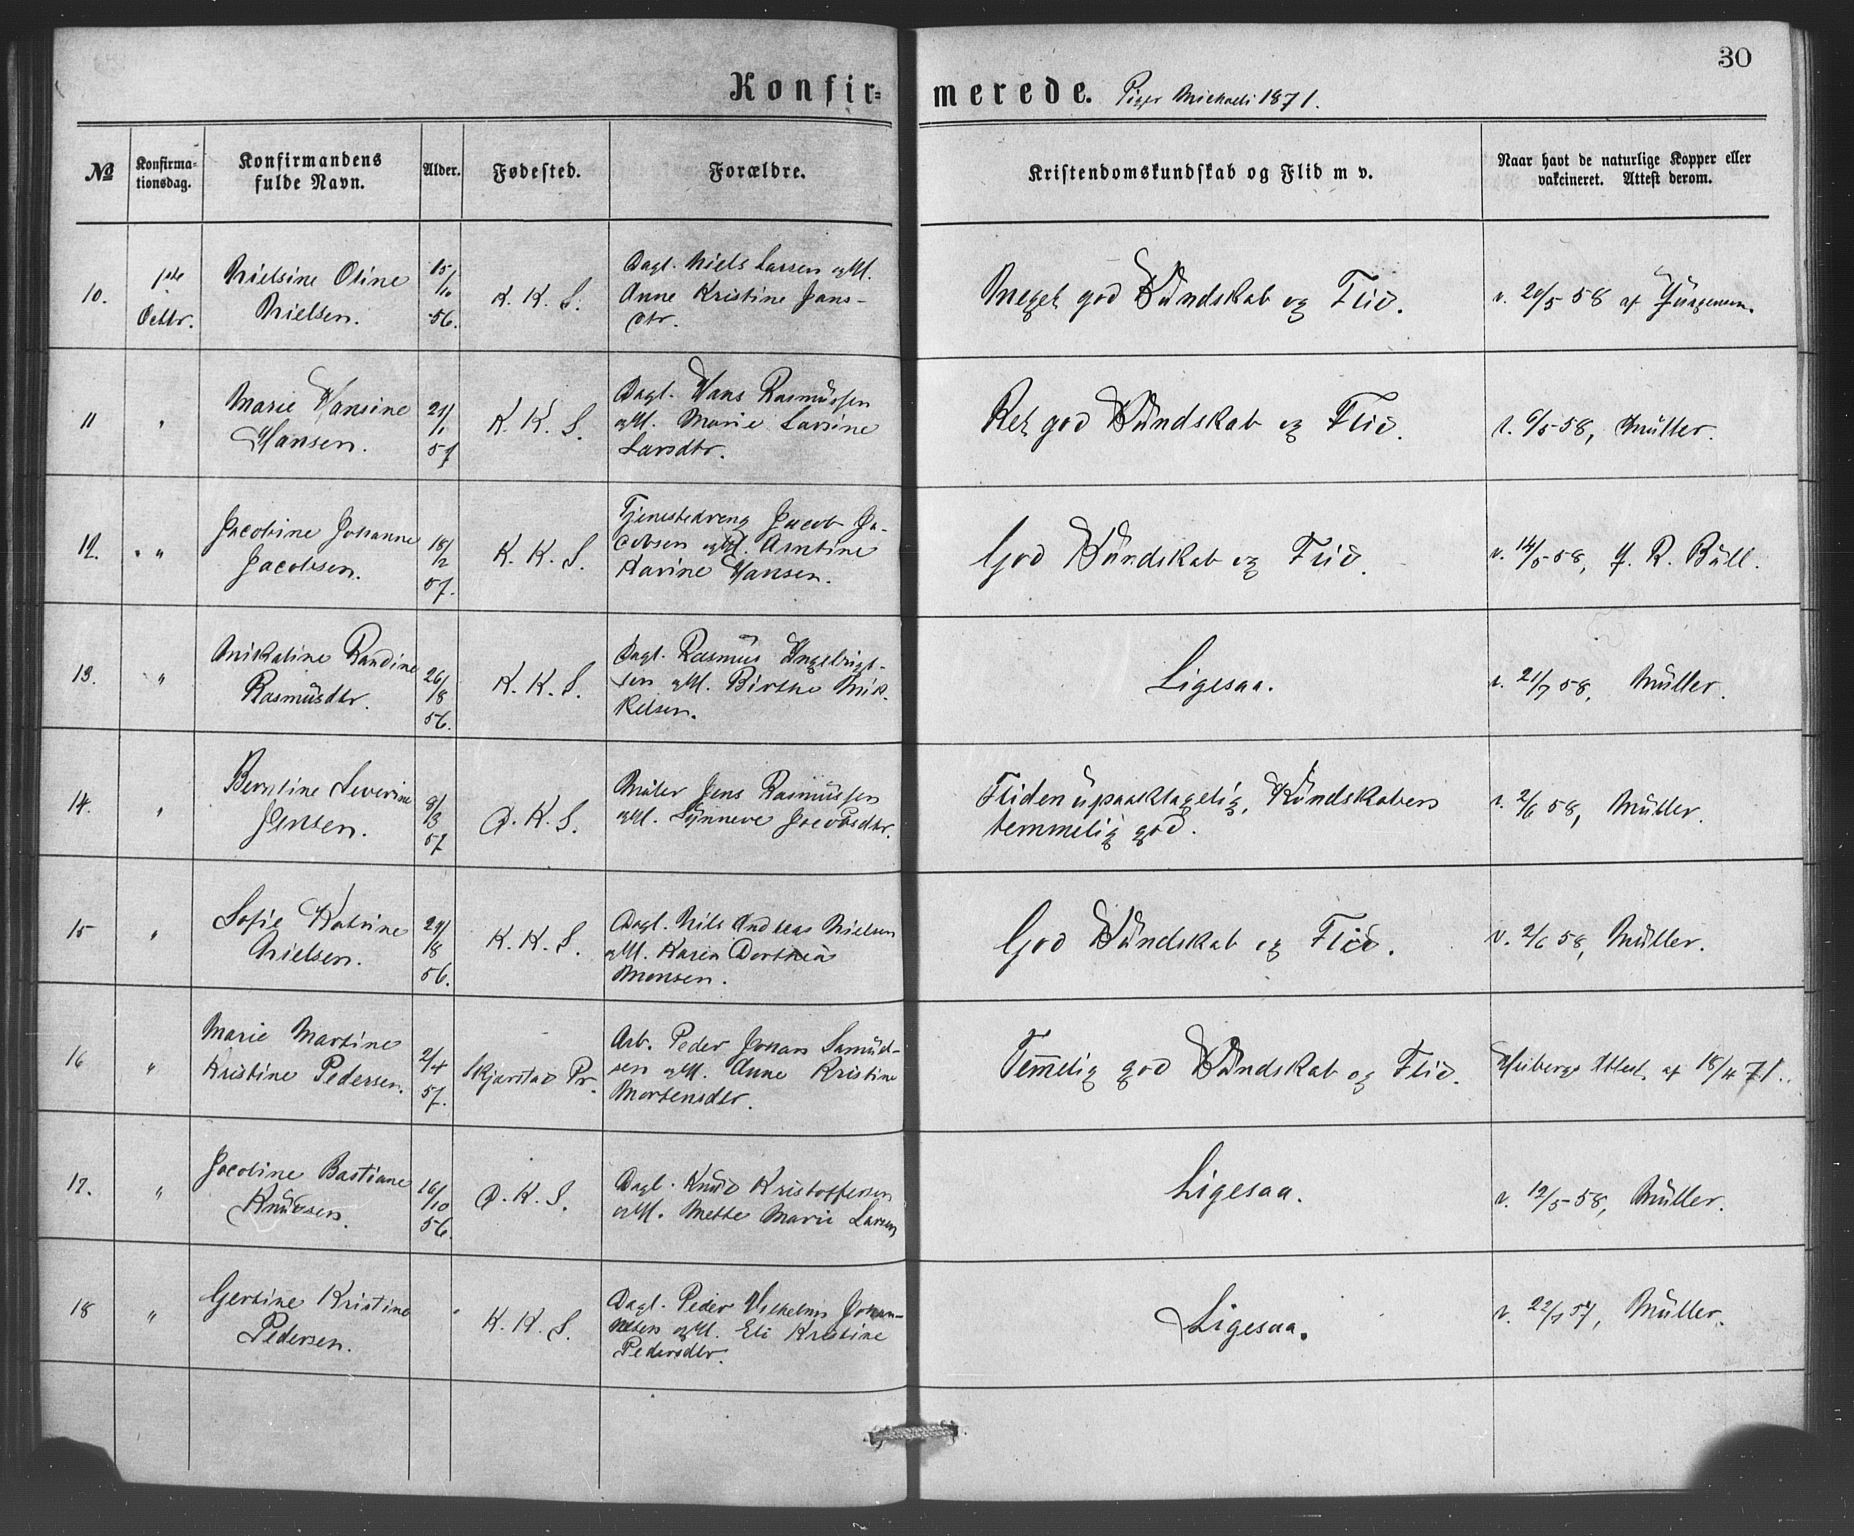 30
Konfir=
merede. Piger Michaeli 1871.
№
Konfirma-
tionsdag.
Konfirmandens
fulde Navn.
Alder.
Fødested.
Forældre.
Kristendomskundskab og Flid m v.
Naar havt de naturlige Kopper eller
vakcineret. Attest derom.
10.
1ste
Octbr.
Nielsine Oline
Nielsen.
15/
/10
56.
K. K. S.
Dagl. Niels Larsen og H.
Anne Kristine Jans-
dtr.
Meget god Kundskab og Flid.
v. 20/5 58 af
11
"
Marie Hansine
Hansen.
21/
/1
57
K. K. S.
Dagl. Hans Rasmussen
og H. Marie Larsine
Larsdtr.
Ret god Kundskab og Flid.
v. 6/5 58, Müller.
12.
"
Jacobine Johanne
Jacobsen.
18/
/2
57.
K. K. S.
Tjenestedreng Jacob Ja-
cobsen og H. Arntine
Karine Hansen.
God Kundskab og Flid.
v. 14/5 58, J. R. Bull.
13.
"
Anikaline Randine
Rasmusdtr.
26/
/8
56.
K. K. S.
Dagl. Rasmus Ingebrigt-
sen og H. Birthe Mik-
kelsen.
Ligesaa.
v. 21/7 58, Müller.
14.
"
Berntine Severine
Jensen.
8/
/3
57
D. K. S.
Maler Jens Rasmussen
og H. Synneve Jacobsdtr.
Fliden upaaklagelig, Kundskaben
temmelig god.
v. 2/6 58, Müller.
15
"
Sofie Katrine
Nielsen.
29/
/8
56.
K. K. S.
Dagl. Nils Andreas Nielsen
og H. Karen Dorthea
Monsen.
God Kundskab og Flid.
v. 2/6 58, Müller.
16
"
Marie Martine
Kristine Pedersen.
2/
/4
57.
Skjerstad Pr.
Arb. Peder Johan Samuel-
sen og H. Anne Kristine
Mortensdtr.
Temelig god Kundskab og Flid.
Attest af 18/4 71.
17.
"
Jacobine Bastiane
Knudsen.
16/
/10
56.
D. K. S.
Dagl. Knud Kristoffersen
og H. Mette Marie Larsen
Ligesaa.
v. 12/5 58, Müller.
18
"
Gertine Kristine
Pedersen.
K. K. S.
Dagl. Peder Vilhelm Johan-
nesen og H. Eli Kristine
Pedersdtr.
Ligesaa.
v. 22/7 57, Müller.